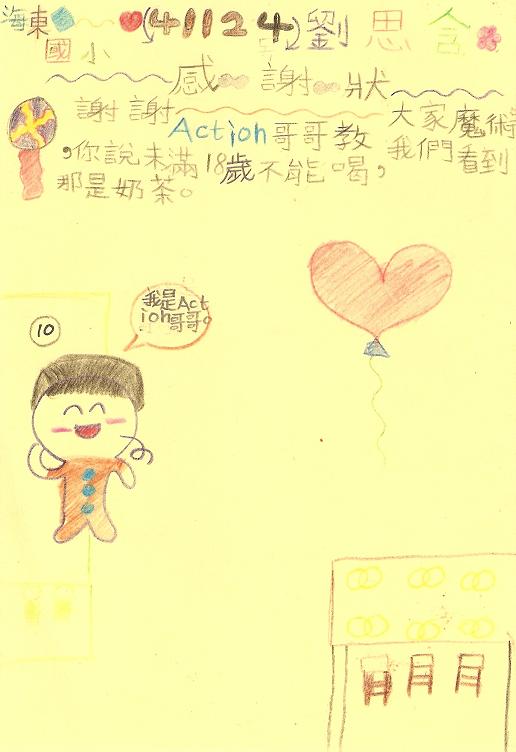 海東國小 (41124) 劉思含
感謝狀
謝謝Action哥哥教大家魔術
，你說未滿18歲不能喝，我們看到
那是奶茶。
我是Act
ion哥哥。
10